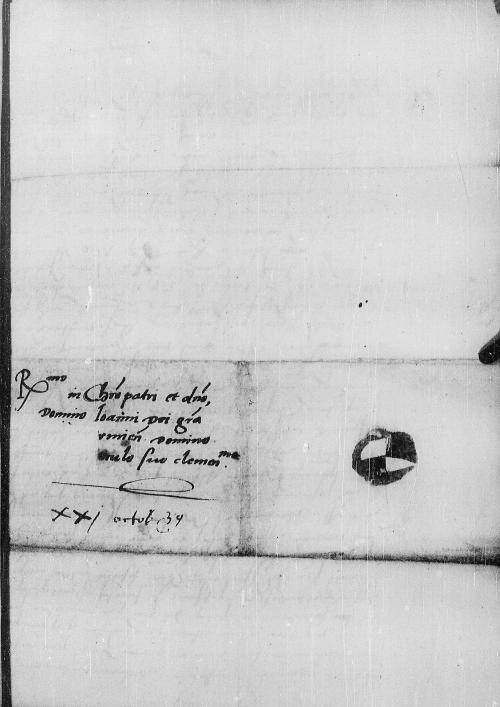 R^mo
in Chro patri et dno,
Domino Ioanni Dei gra
domino
suo clemen^mo
XXI octob 39